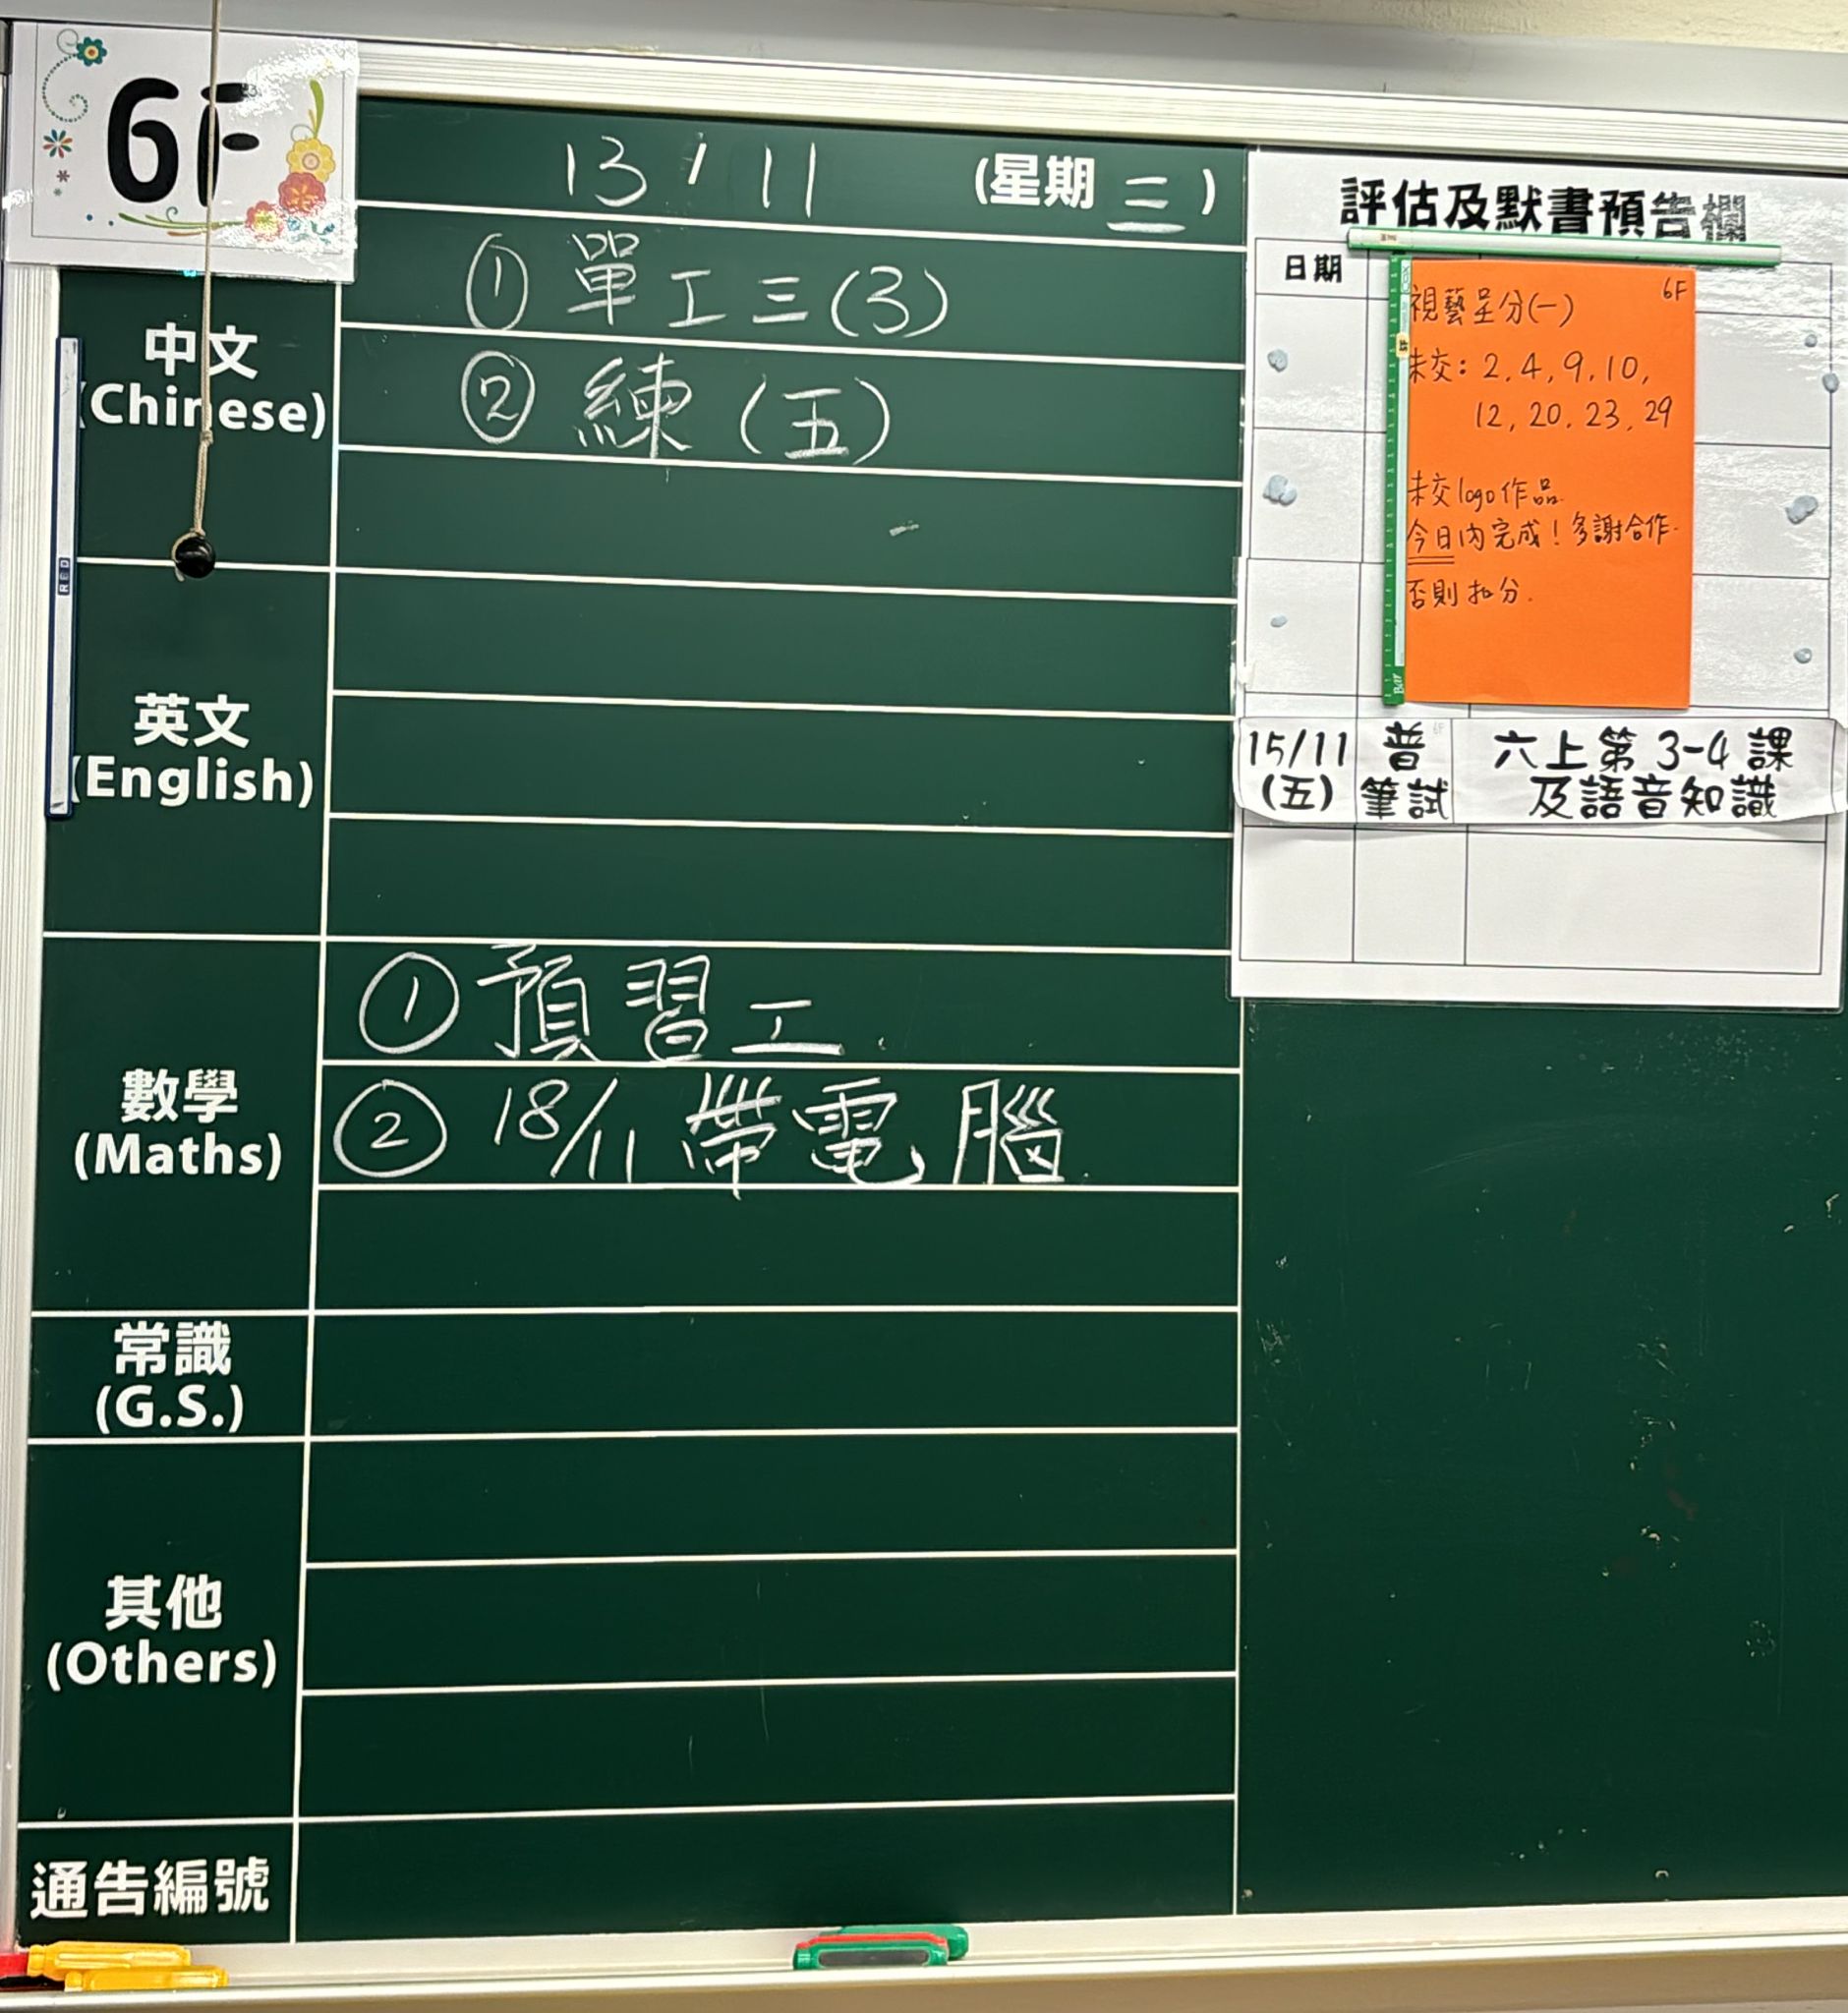 6F
13 / 11 (星期 三 )
中文
(Chinese)
① 單工三(3)
② 練(五)
英文
(English)
數學
(Maths)
① 預習工
② 18/11 帶電腦
常識
(G.S.)
其他
(Others)
通告編號
評估及默書預告欄
日期
6F
視藝呈分(一)
未交: 2, 4, 9, 10,
12, 20, 23, 29
未交logo作品
今日內完成! 多謝合作.
否則扣分.
15/11 普 六上第3-4課
(五) 筆試 及語音知識
RED